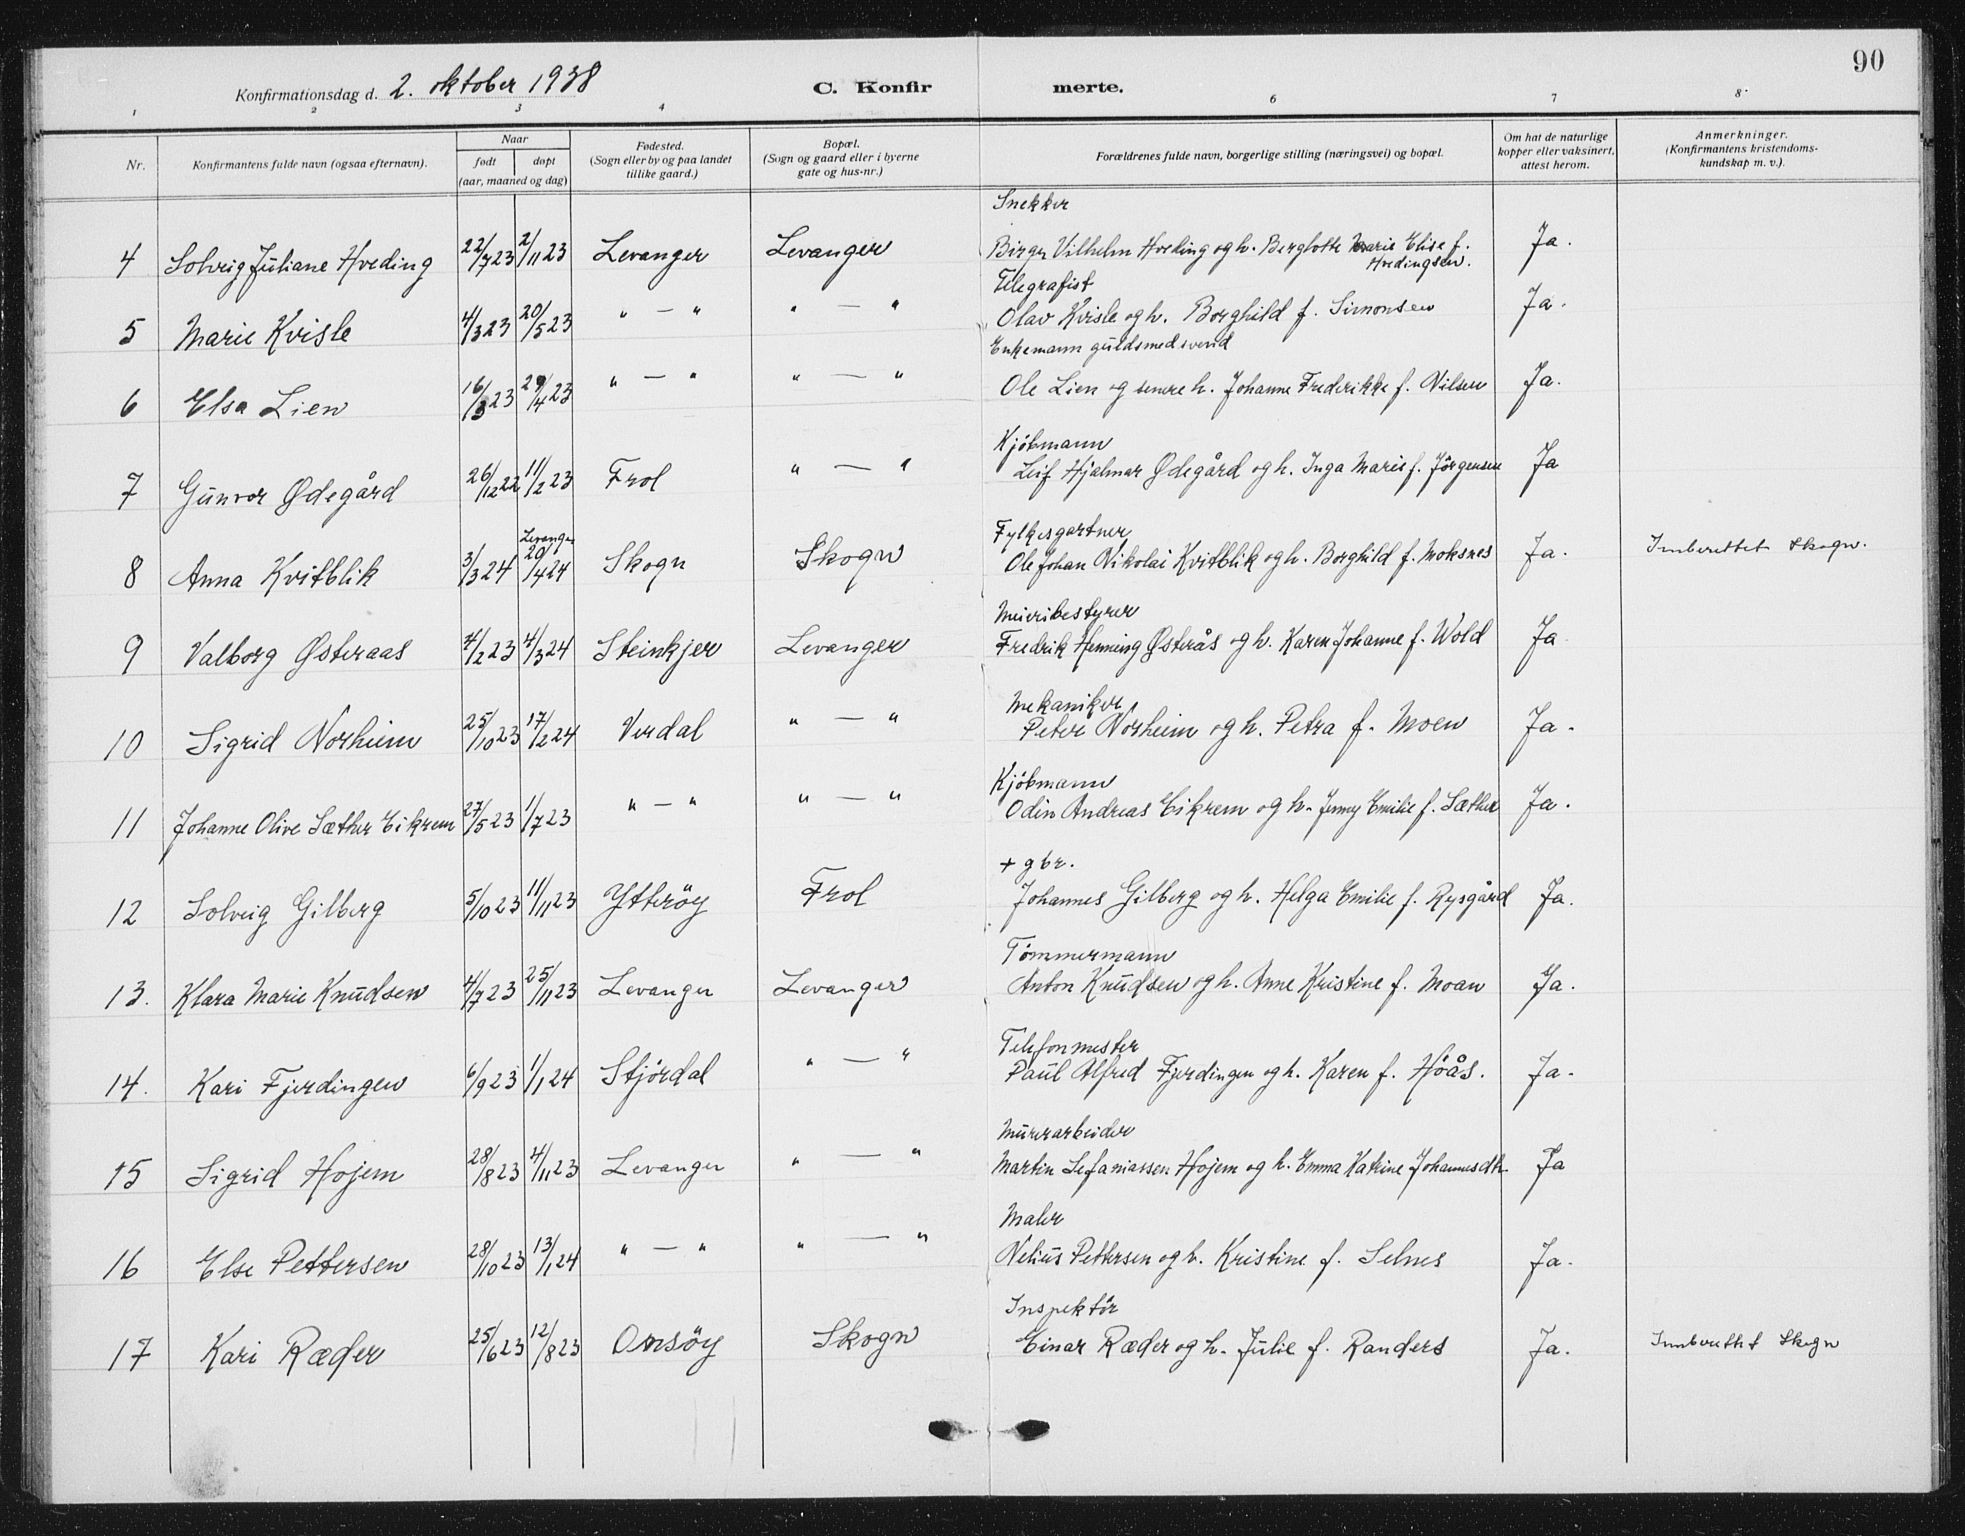 90
Konfirmationsdag d. 2. oktober 1938 C. Konfirmerte.
1 2 3 4 6 7 8
Nr. Konfirmantens fulde navn (ogsaa efternavn). Naar født døpt (aar, maaned og dag) Fødested. (Sogn eller by og paa landet tillike gaard.) Bopæl. (Sogn og gaard eller i byerne gate og hus-nr.) Forældrenes fulde navn, borgerlige stilling (næringsvei) og bopæl. Om hat de naturlige kopper eller vaksinert, attest herom. Anmerkninger. (Konfirmantens kristendoms-kundskap m. v.).
Snekker
4 Solveig Juliane Hveding 22/7 23 2/11 23 Levanger Levanger Birger Vilhelm Hveding og h. Berglotte Marie Elise f. Hvedingsen. Ja.
Telegrafist
5 Marie Kvisle 4/3 23 20/5 23 " — " " — " Olav Kvisle og h. Borghild f. Simonsen Ja.
Enkemann guldsmedsvend
6 Elsa Lien 16/3 23 29/4 23 " — " " — " Ole Lien og senere h. Johanne Frederikke f. Nilsen Ja.
Kjøbmann
7 Gunvor Ødegård 26/12 22 11/2 23 Frol " — " Leif Hjalmar Ødegård og h. Inga Marie f. Jörgensen Ja
Fylkesgartner
8 Anna Kvitblik 3/3 24 Levanger 20/4 24 Skogn Skogn Ole Johan Nikolai Kvitblik og h. Borghild f. Moksnes Ja. Innberettet Skogn.
Meieribestyrer
9 Valborg Østeraas 4/2 23 4/3 24 Steinkjer Levanger Fredrik Henning Østerås og h. Karen Johanne f. Wold Ja
Mekaniker
10 Sigrid Norheim 25/10 23 17/2 24 Verdal " — " Peter Norheim og h. Petra f. Moen Ja.
Kjøbmann
11 Johanne Olive Sæther Eikrem 27/5 23 1/7 23 " — " " — " Odin Andreas Eikrem og h. Jenny Emilie f. Sæther Ja.
+ gbr.
12 Solveig Gilberg 5/10 23 11/11 23 Ytterøy Frol Johannes Gilberg og h. Helga Emilie f. Rysgård Ja.
Tömmermann
13. Klara Marie Knudsen 4/7 23 25/11 23 Levanger Levanger Anton Knudsen og h. Anne Kristine f. Moan Ja.
Telefonmester
14. Kari Fjerdingen 6/9 23 1/1 24 Stjördal " — " Paul Alfred Fjerdingen og h. Karen f. Höås. Ja.
Murerarbeider
15 Sigrid Hojem 28/8 23 4/11 23 Levanger " — " Martin Sefaniassen Hojem og h. Emma Katrine Johannesdtr. Ja
Maler
16 Else Pettersen 28/10 23 13/1 24 " — " " — " Nelius Pettersen og h. Kristine f. Selnes Ja.
Inspektör
17 Kari Ræder 25/6 23 12/8 23 Onsöy Skogn Einar Ræder og h. Julie f. Randers Ja. Innberettet Skogn